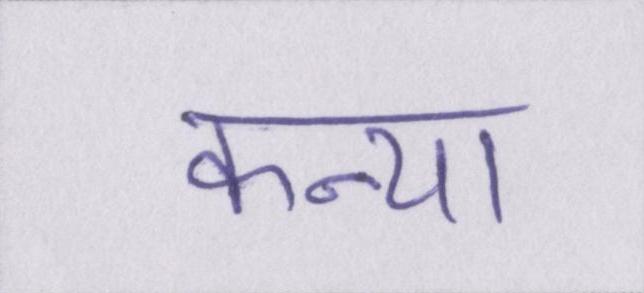 कन्या